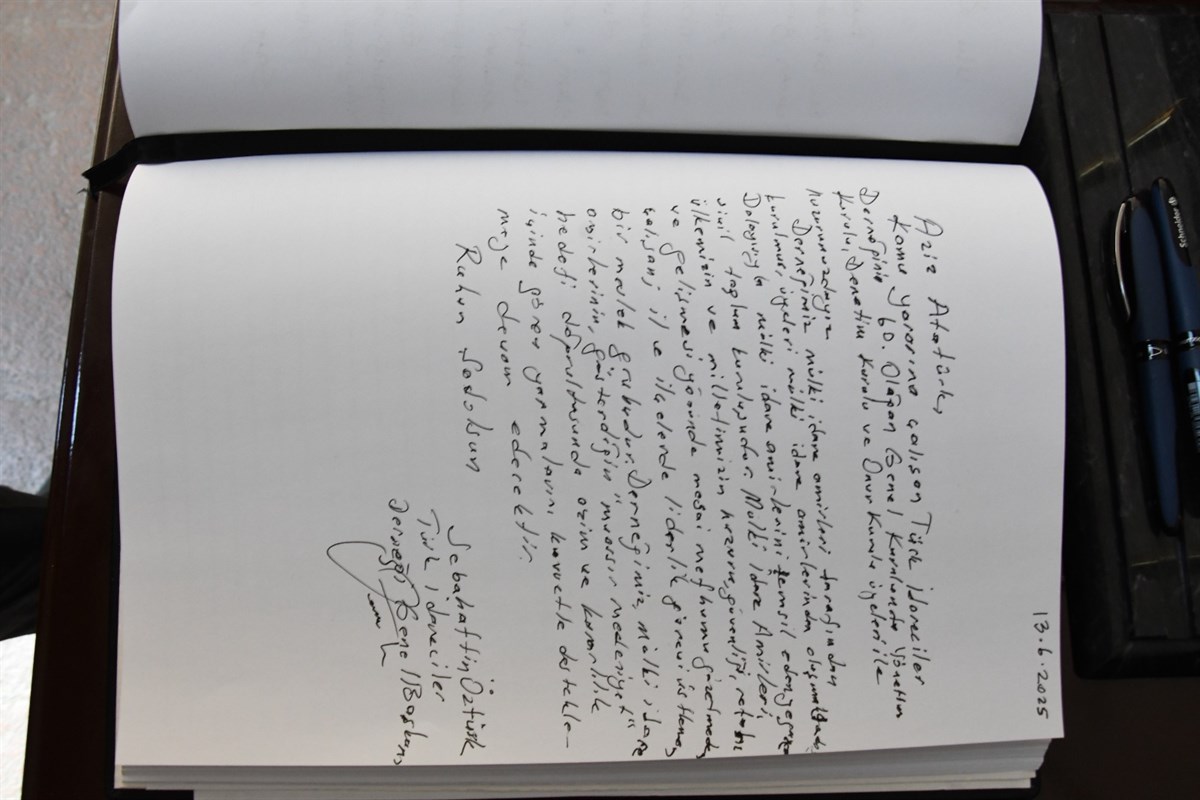 13.6.2025
Aziz Atatürk,
Kamu yararına çalışan Türk İdareciler
Derneğinin 60. Olağan Genel Kurulunda Yönetim
Kurulu, Denetim Kurulu ve Onur Kurulu üyeleri ile
huzurunuzdayız.
Derneğimiz mülki idare amirleri tarafından
kurulmuş, üyeleri mülki idare amirlerinden oluşmaktadır.
Dolayısıyla mülki idare amirlerini temsil eden yegane
sivil toplum kuruluşudur. Mülki İdare Amirleri,
ülkemizin ve milletimizin huzuru, güvenliği, refahı
ve gelişmesi yönünde mesai mefhumu gözetmeden
çalışan; il ve ilçelerde liderlik görevi üstlenmiş
bir meslek grubudur. Derneğimiz, mülki idare
amirlerinin, gösterdiğin "muasır medeniyet"
hedefi doğrultusunda azim ve kararlılık
içinde görev yapmalarını kuvvetle destekle-
meye devam edecektir.
Ruhun Şadolsun
Sebahattin Öztürk
Türk İdareciler
Derneği Genel Başkanı
Schneider